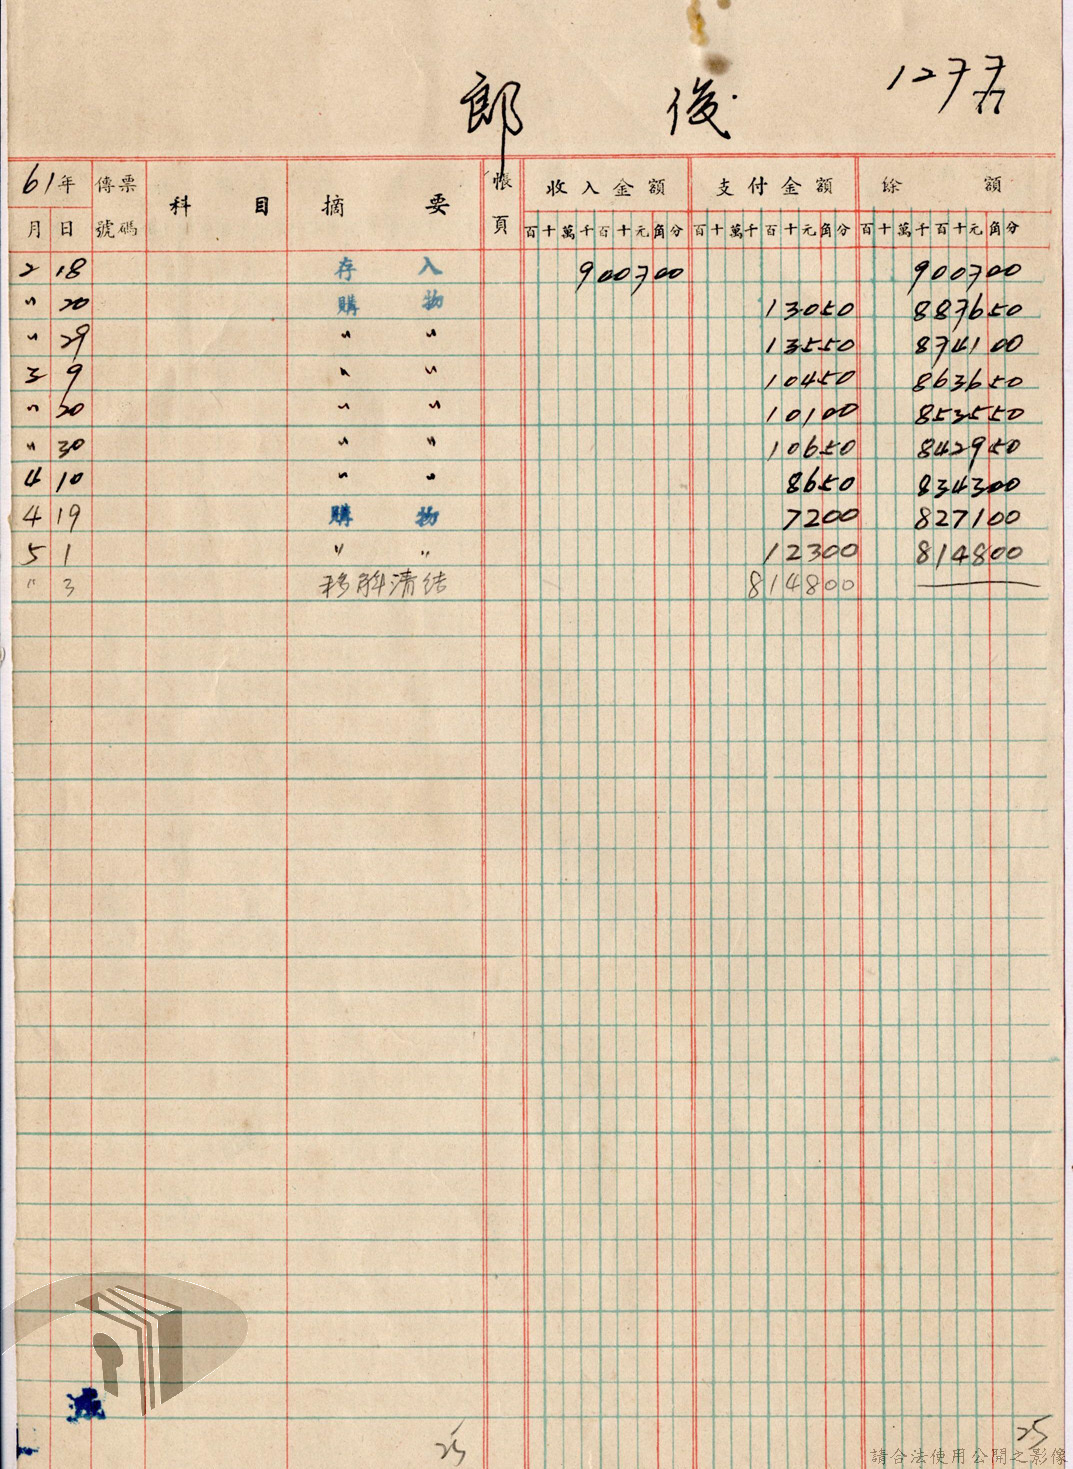 127
郎 俊
61年 傳票號碼 科目 摘要 帳頁 收入金額 支付金額 餘額
月 日 百十萬千百十元角分 百十萬千百十元角分 百十萬千百十元角分
2 18 存入 900700 900700
〃 20 購物 13050 887650
〃 29 〃 〃 13550 874100
3 9 〃 〃 10450 863650
〃 20 〃 〃 10100 853550
〃 30 〃 〃 10650 842950
4 10 〃 〃 8650 834300
4 19 購物 7200 827100
5 1 〃 〃 12300 814800
〃 3 移解清结 814800
25 25
請合法使用公開之影像